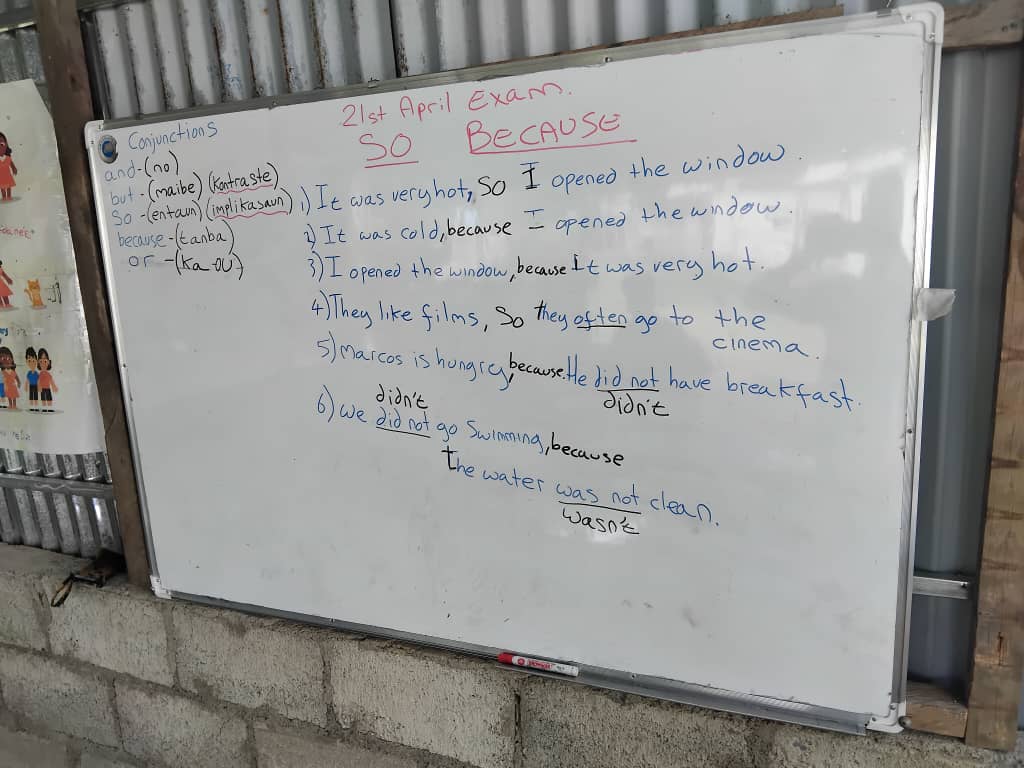 21st April Exam.
SO BECAUSE
Conjunctions
and-(no)
but-(maibe) (kontraste)
So-(entaun) (implikasaun)
because-(tanba)
or -(ka-ou)
1) It was very hot, So I opened the window.
2) It was cold, because I opened the window.
3) I opened the window, because It was very hot.
4) They like films, So they often go to the
cinema.
5) marcos is hungry, because. He did not have breakfast.
didn't
didn't
6) we did not go Swimming, because
the water was not clean.
wasn't